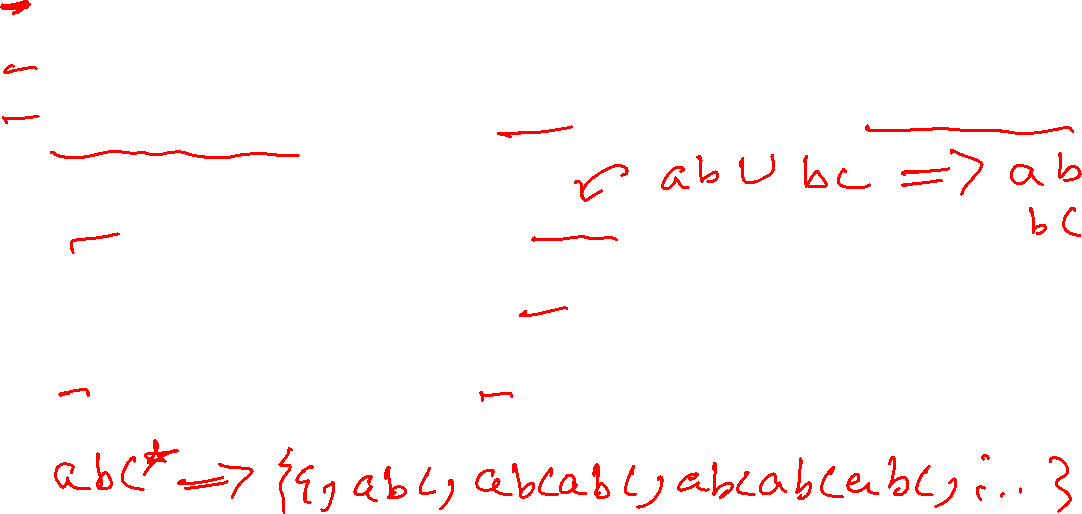 ab ∪ bc ⇒ ab
bc
abc* ⇒ {ε, abc, abcabc, abcabcabc, ... }